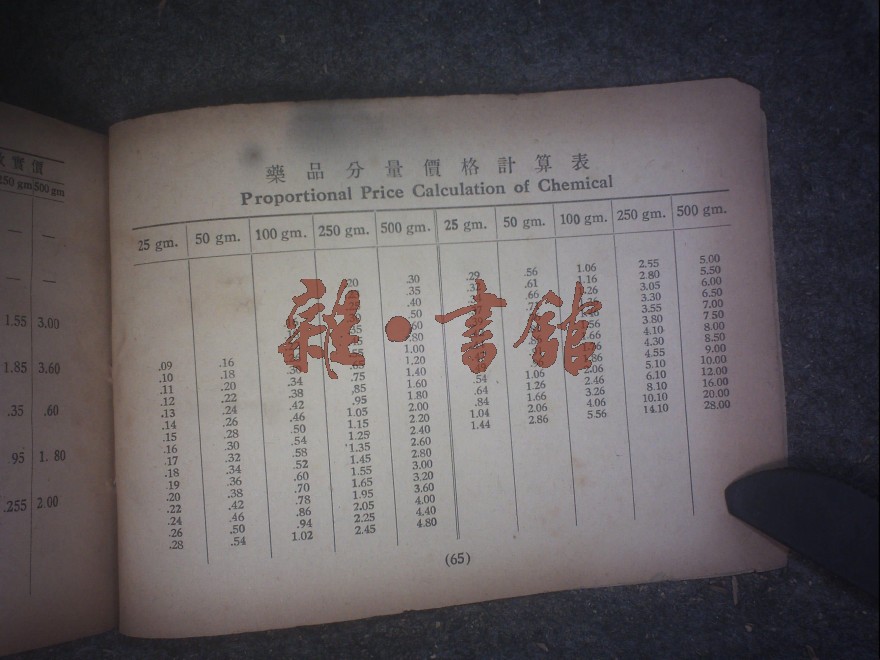 效實價
250 gm 500 gm
— —
—
1.55 3.00
1.85 3.60
.35 .60
.95 1.80
.255 2.00
藥品分量價格計算表
Proportional Price Calculation of Chemical
25 gm. 50 gm. 100 gm. 250 gm. 500 gm. 25 gm. 50 gm. 100 gm. 250 gm. 500 gm.
.20 .30 .29 .56 1.06 2.55 5.00
.35 .61 1.16 2.80 5.50
.40 .66 1.26 3.05 6.00
.50 3.30 6.50
.35 .60 3.55 7.00
.80 .56 3.80 7.50
.55 1.00 4.10 8.00
.09 .16 1.20 4.30 8.50
.10 .18 .75 1.40 4.55 9.00
.11 .20 .34 .85 1.60 .54 1.06 2.06 5.10 10.00
.12 .22 .38 .95 1.80 .64 1.26 2.46 6.10 12.00
.13 .24 .42 1.05 2.00 .84 1.66 3.26 8.10 16.00
.14 .26 .46 1.15 2.20 1.04 2.06 4.06 10.10 20.00
.15 .28 .50 1.25 2.40 1.44 2.86 5.56 14.10 28.00
.16 .30 .54 1.35 2.60
.17 .32 .58 1.45 2.80
.18 .34 .52 1.55 3.00
.19 .36 .60 1.65 3.20
.20 .38 .70 1.95 3.60
.22 .42 .78 2.05 4.00
.24 .46 .86 2.25 4.40
.26 .50 .94 2.45 4.80
.28 .54 1.02
(65)
雜•書館